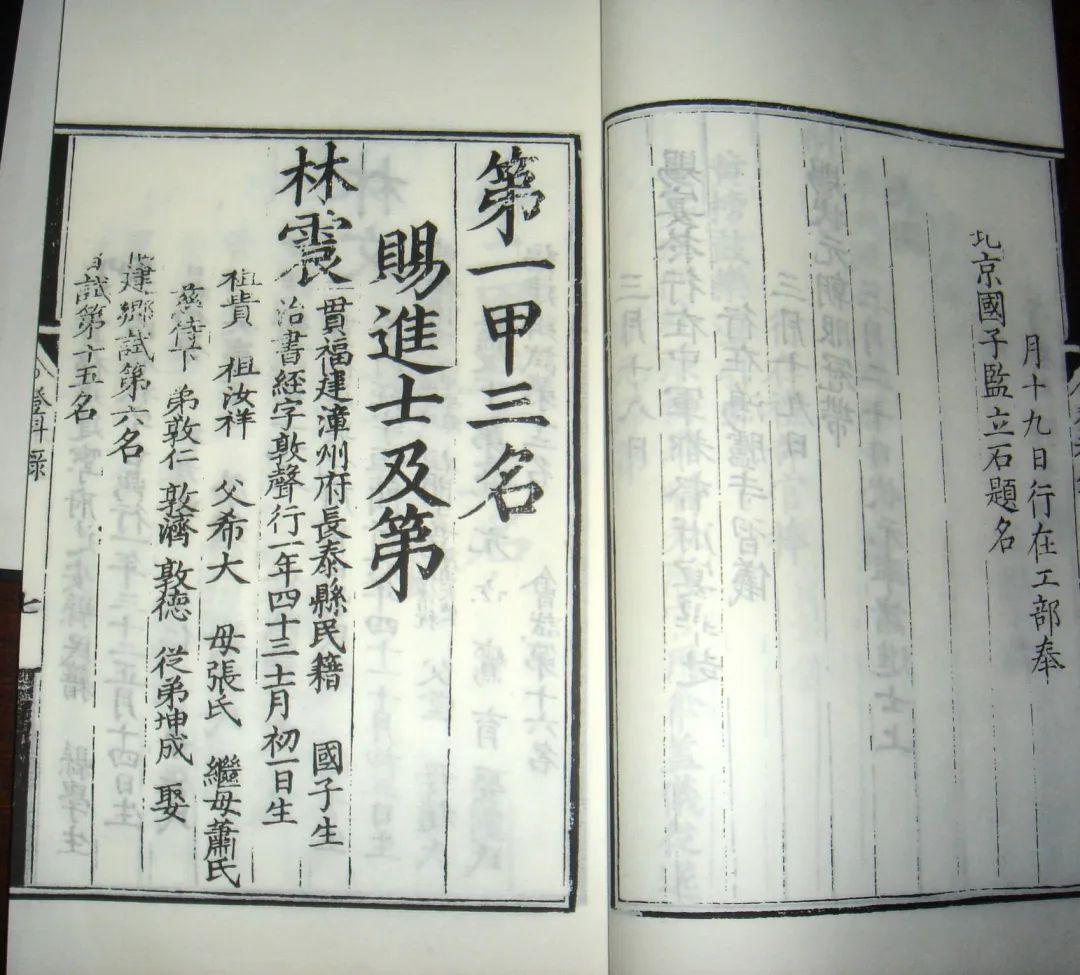 月十九日行在工部奉
北京國子監立石題名
第一甲三名
賜進士及第
林震
貫福建漳州府長泰縣民籍 國子生
治書經字敦聲行一年四十三七月初一日生
祖貴 祖汝祥 父希大 母張氏 繼母蕭氏
慈侍下 弟敦仁 敦濟 敦德 從弟坤成 娶
建鄉試第六名
試第十五名
登科錄
七